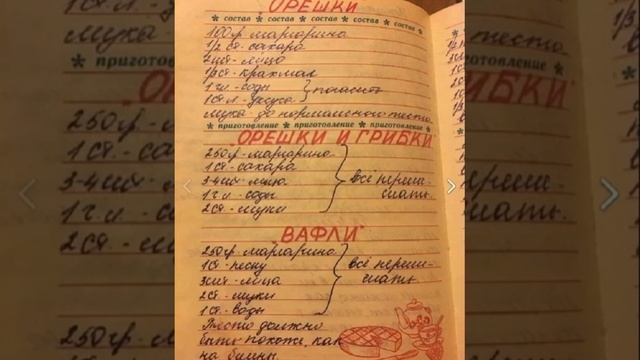 ОРЕШКИ
* состав * состав * состав * состав * состав *
100гр маргарина
1/2 ст. сахара
2шт - яйцо
1/3 ст. крахмал
1 ч.л - соды } погасить
1 ст.л - уксуса
Мука до нормального теста
* приготовление * приготовление * приготовление *
"ОРЕШКИ И ГРИБКИ"
250гр - маргарина
1 ст - сахара
3-4шт - яйца
1 ч.л - соды
2 ст - муки
всё переме-
шать.
ВАФЛИ"
250гр маргарина
1 ст - песку
3шт - яйца
2 ст - муки
1 ст - воды
всё переме-
шать
Тесто должно
быть похоже, как
на блины